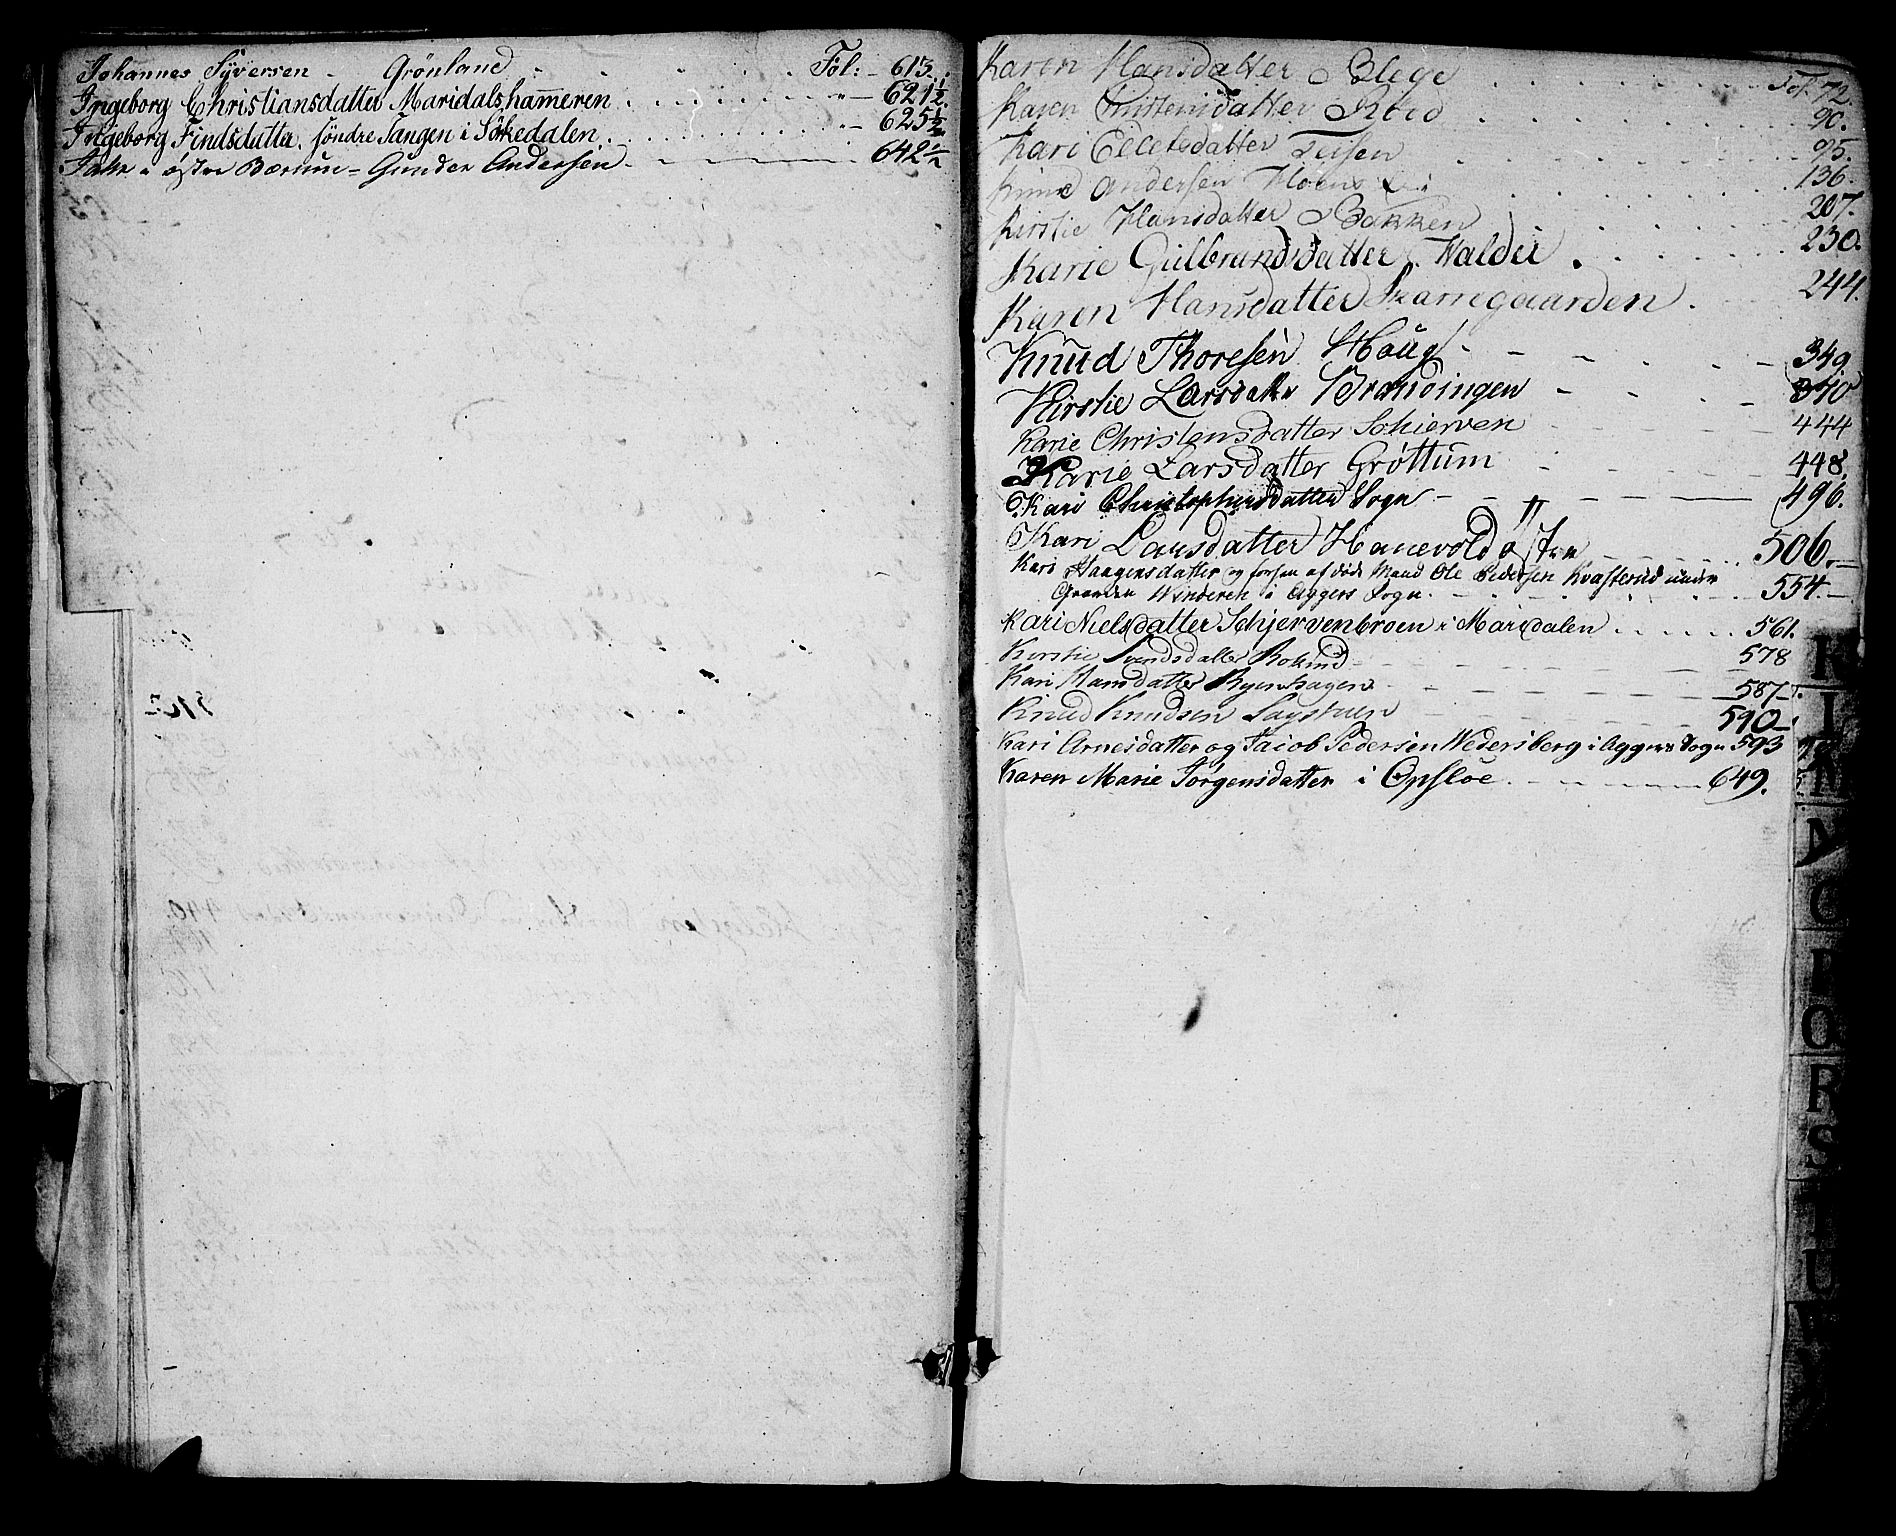 Johannes Syversen - Grönland Fol: - 613.
Ingeborg Christiansdatter Maridalshameren - 621½
Ingeborg Findsdatter. söndre Tangen i Sökedalen. - 625½
i øster Bærum - Gunder Andersen - 642½
Karen Hansdatter Blege Fol. 72.
Karen Christensdatter 90.
Kari Ellefsdatter Teisen 95.
Andersen 136.
Kirstie Hansdatter Bakken 207.
Karie Gulbrandsdatter Walder 230.
Karen Hansdatter 244.
Knud Thoresen Houg - 349
Kirstie Larsdatter - 340
Karie Christensdatter Schierven 444
Karie Larsdatter Grøttum 448.
Kari Christophersdatter Sogn - 496.
Kari Larsdatter Hanevold østre 506.
Kari Haagensdatter og hendes af døde Mand Ole Pedersen Kvasterud under
Gaarden Winderen i Aggers Sogn. 554.
Kari Nielsdatter Schjervenbroen i Maridalen 561.
Kirstie Svendsdatter 578
Kari Hansdatter Ryenshagen 587
Knud Knudsen 590
Kari Arnesdatter og Jacob Pedersen Wedersberg i Aggers Sogn 593
Karen Marie Jörgensdatter i Opsloe 649.
K
L
M
N
O
P
Q
R
S
T
U